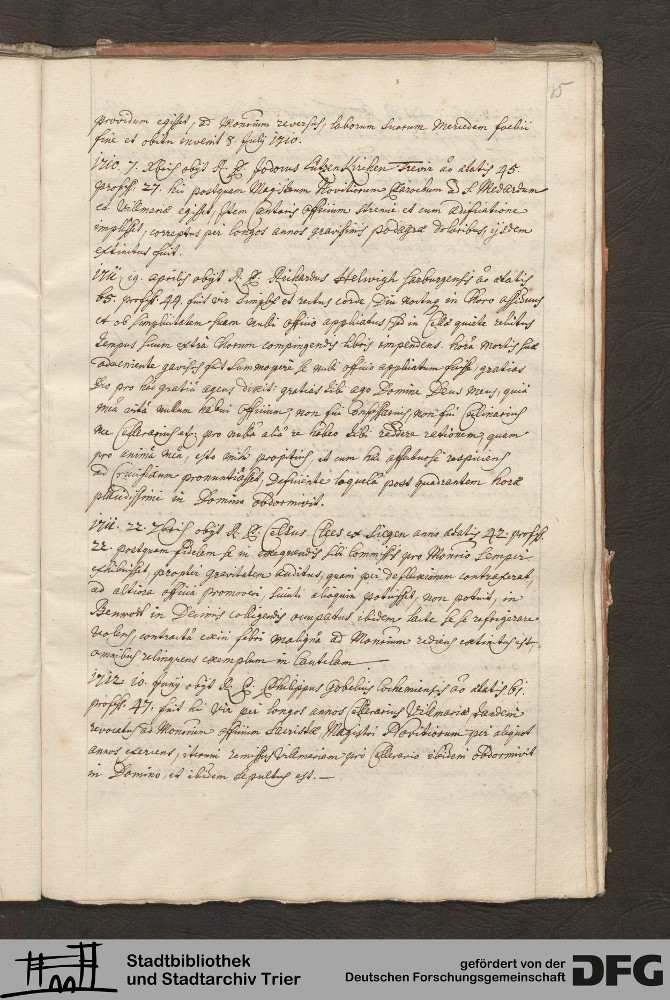 15
providum egisset, ad Monrium reversus, laborum suorum mercedem faelici
fine et obitu invenit 8. July 1710.
1710. 7. Xbris obijt R. P. Jodocus Lutzenkirchen Trevir aõ aetatis 45.
profess. 27. hic postquam Magistrum Novitiorum Parochum ad S. Medardum
et Vilmariae egisset, item Cantoris officium strenue et cum aedificatione
implesset, correptus per longos annos gravissimis podagrae doloribus, ijsdem
extinctus fuit.
1711. 19. aprilis obijt R. P. Richardus Helwigh Sarburgensis aõ aetatis
65. profess. 44. fuit vir simplex et rectus corde, Diu noctuq in Choro assiduus
et ob simplicitatem suam nulli officio applicatus, sed in Cella quiete relictus
tempus suum extra Chorum compingendis libris impendens. hora mortis suae
adveniente gavisus fuit summopere se nulli officio applicatum fuisse, gratias
Deo pro hac gratia agens dixit: gratias tibi ago Domine Deus meus, quia
mea vita nullum habui officium, non fui Confessarius non fui Culinarius
nec Cellerarius etc: pro nulla alia re habeo tibi reddere rationem, quam
pro anima mea, esto mihi propitius et cum haec affectuose respiciens
ad Crucifixum pronuntiasset, deficiente loquela post quadrantem horae
placidissime in Domino obdormivit.
1711. 22. 7bris obijt R. P. Celsus Clees ex Siegen anno aetatis 42. profess.
22. postquam fidelem se in exequendis sibi commissis pro Monrio semper
exhibuisset, propter gravitatem auditus, quam per defluxionem contraxerat,
ad altiora officia promoveri, sicuti alioquin potuisset, non potuit, in
Benrodt in Decimis colligendis occupatus ibidem lacte se se refrigerare
volens, contracta exin febri maligna ad Monrium rediens extinctus est,
omnibus relinquens exemplum in Cautelam
1712. 10. Juny obijt R. P. Philippus Gobelius Cochemiensis aõ aetatis 61.
profess. 47. fuit hic vir per longos annos Cellerarius Vilmariae tandem
revocatus ad Monrium officium Sacristae, Magistri Novitiorum per aliquot
annos exercens, iterum remissus Vilmariam pro Cellerario ibidem obdormivit
in Domino, et ibidem sepultus est.
Stadtbibliothek
und Stadtarchiv Trier
gefördert von der
Deutschen Forschungsgemeinschaft
DFG